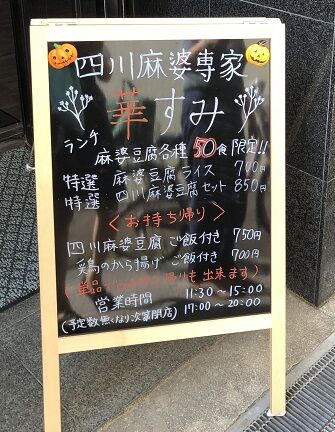 四川麻婆専家
華すみ
ランチ
麻婆豆腐各種50食限定!!
特選 麻婆豆腐ライス 700円
特選 四川麻婆豆腐セット 850円
〈お持ち帰り〉
四川麻婆豆腐ご飯付き 750円
鶏のから揚げご飯付き 700円
(単品でのお持ち帰りも出来ます)
営業時間 11:30~15:00
(予定数無くなり次第閉店) 17:00~20:00